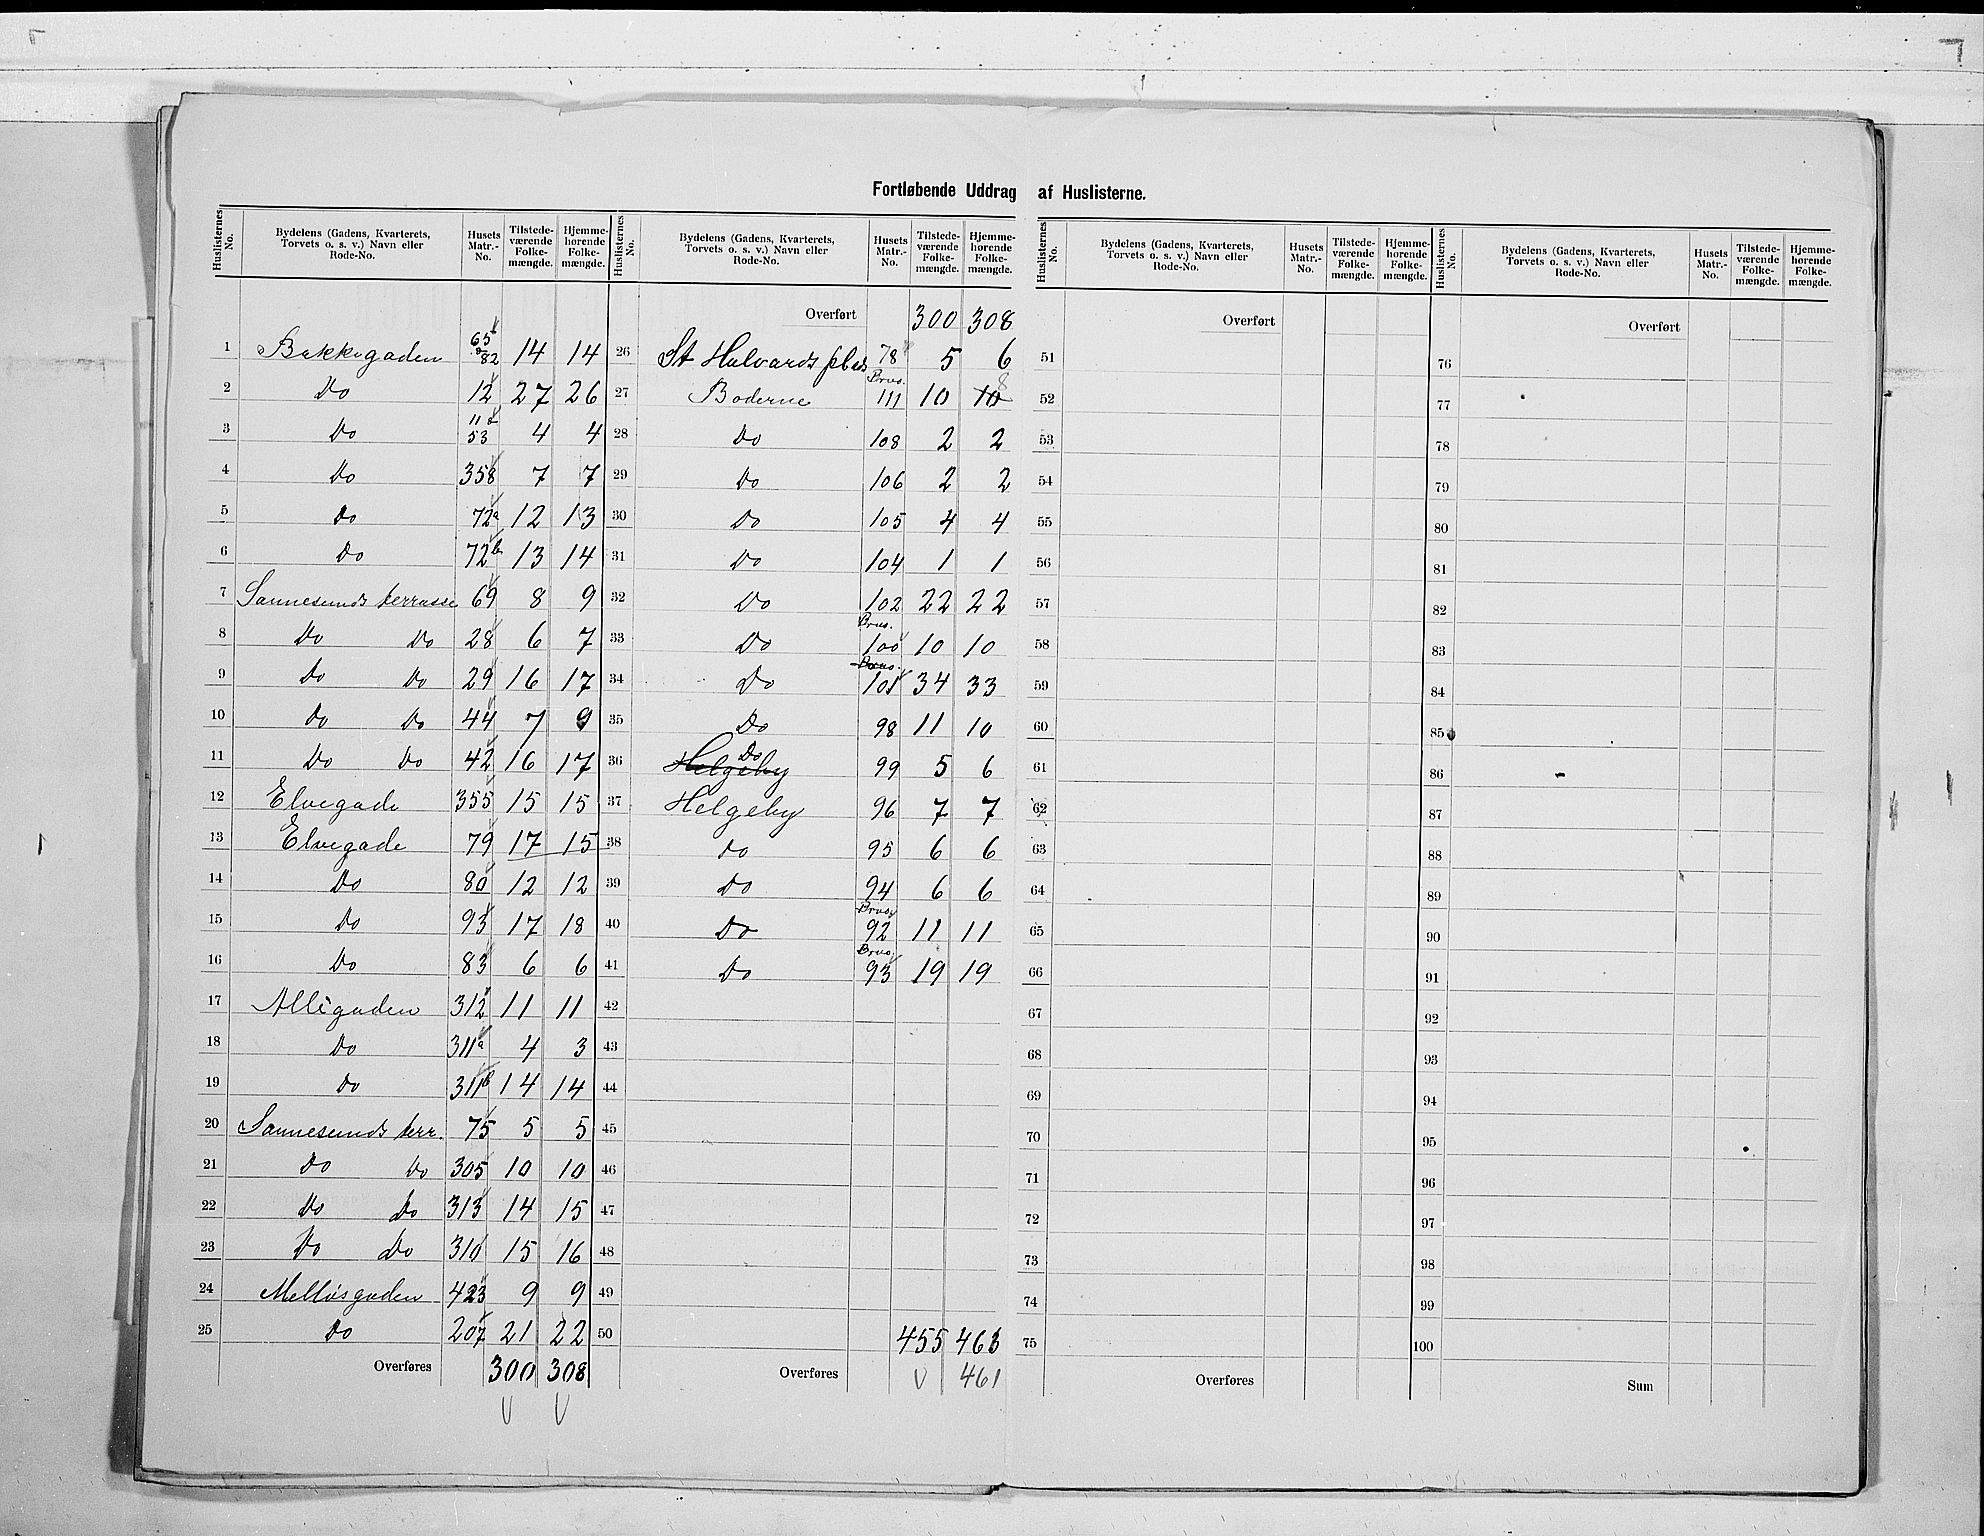 Fortløbende Uddrag af Huslisterne.
Huslisternes No. | Bydelens (Gadens, Kvarterets, Torvets o. s. v.) Navn eller Rode-No. | Husets Matr.-No. | Tilstedeværende Folkemængde. | Hjemmehørende Folkemængde.
1 Bakkegaden 65b 82 14 14
2 Do 12 27 26
3 Do 11 53 4 4
4 Do 358 7 7
5 Do 72a 12 13
6 Do 72b 13 14
7 Sannesunds terrasse 69 8 9
8 Do Do 28 6 7
9 Do Do 29 16 17
10 Do Do 44 7 9
11 Do Do 42 16 17
12 Elvegade 355 15 15
13 Elvegade 79 17 15
14 Do 80 12 12
15 Do 93 17 18
16 Do 83 6 6
17 Allégaden 312 11 11
18 Do 311a 4 3
19 Do 311b 14 14
20 Sannesunds terr. 75 5 5
21 Do Do 305 10 10
22 Do Do 313 14 15
23 Do Do 310 15 16
24 Melløsgaden 423 9 9
25 Do 207 21 22
Overføres 300 308
Huslisternes No. | Bydelens (Gadens, Kvarterets, Torvets o. s. v.) Navn eller Rode-No. | Husets Matr.-No. | Tilstedeværende Folkemængde. | Hjemmehørende Folkemængde.
Overført 300 308
26 St Halvards plads 78 5 6
27 Boderne 111 10 10 8
28 Do 108 2 2
29 Do 106 2 2
30 Do 105 4 4
31 Do 104 1 1
32 Do 102 22 22
33 Do 100 10 10
34 Do 101 34 33
35 Do 98 11 10
36 Helgeby Do 99 5 6
37 Helgeby 96 7 7
38 Do 95 6 6
39 Do 94 6 6
40 Do 92 11 11
41 Do 93 19 19
42
43
44
45
46
47
48
49
50 455 463
Overføres 461
Huslisternes No. | Bydelens (Gadens, Kvarterets, Torvets o. s. v.) Navn eller Rode-No. | Husets Matr.-No. | Tilstedeværende Folkemængde. | Hjemmehørende Folkemængde.
Overført
51
52
53
54
55
56
57
58
59
60
61
62
63
64
65
66
67
68
69
70
71
72
73
74
75
Overføres
Huslisternes No. | Bydelens (Gadens, Kvarterets, Torvets o. s. v.) Navn eller Rode-No. | Husets Matr.-No. | Tilstedeværende Folkemængde. | Hjemmehørende Folkemængde.
Overført
76
77
78
79
80
81
82
83
84
85
86
87
88
89
90
91
92
93
94
95
96
97
98
99
100
Sum